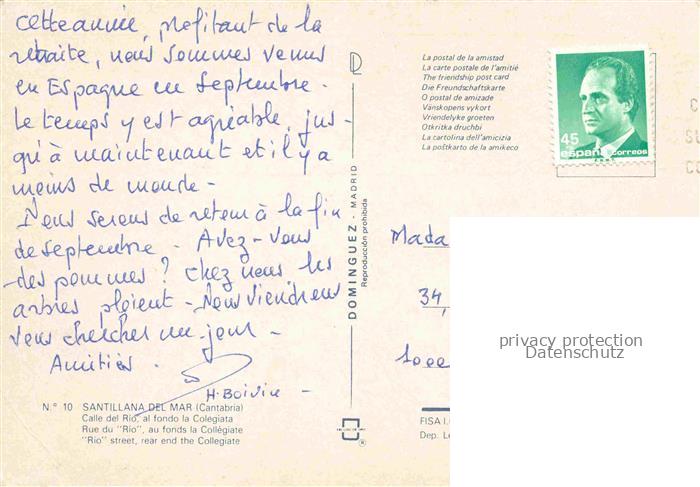 cette année, profitant de la
retraite, nous sommes venus
en Espagne en Septembre.
Le temps y est agréable, jus-
qu'à maintenant et il y a
moins de monde -
Nous serons de retour à la fin
de septembre. Avez-vous
des pommes? Chez nous les
arbres ploient - Nous viendrons
vous chercher un jour -
Amitiés.
H. Boivin -
N.° 10 SANTILLANA DEL MAR (Cantabria)
Calle del Río, al fondo la Colegiata
Rue du "Río", au fonds la Collégiate
"Río" street, rear end the Collegiate
DOMINGUEZ - MADRID
Reproducción prohibida
La postal de la amistad
La carte postale de l'amitié
The friendship post card
Die Freundschaftskarte
O postal de amizade
Vänskopens vykort
Vriendelyke groeten
Otkritka druchbi
La cartolina dell'amicizia
La poŝtkarto de la amikeco
45
españa correos
Mada
34,
1000
FISA I.
Dep. Le
privacy protection
Datenschutz